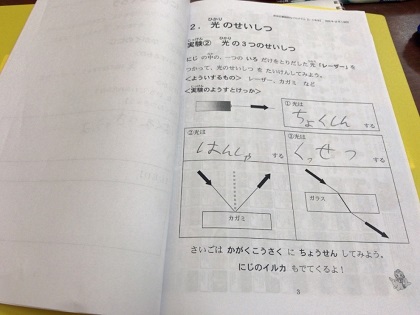 ２．光のせいしつ
ひかり
実験② 光の３つのせいしつ
じっけん ひかり
にじの中の、一つの いろ だけをとりだした光「レーザー」を
つかって、光のせいしつ を たいけんしてみよう。
<よういするもの> レーザー、カガミ など
<実験のようすとけっか>
①光は
ちょくしん する
②光は
はんしゃ する
③光は
くっせつ する
カガミ
ガラス
さいごは かがくこうさく に ちょうせん してみよう。
にじのイルカ もでてくるよ！
3